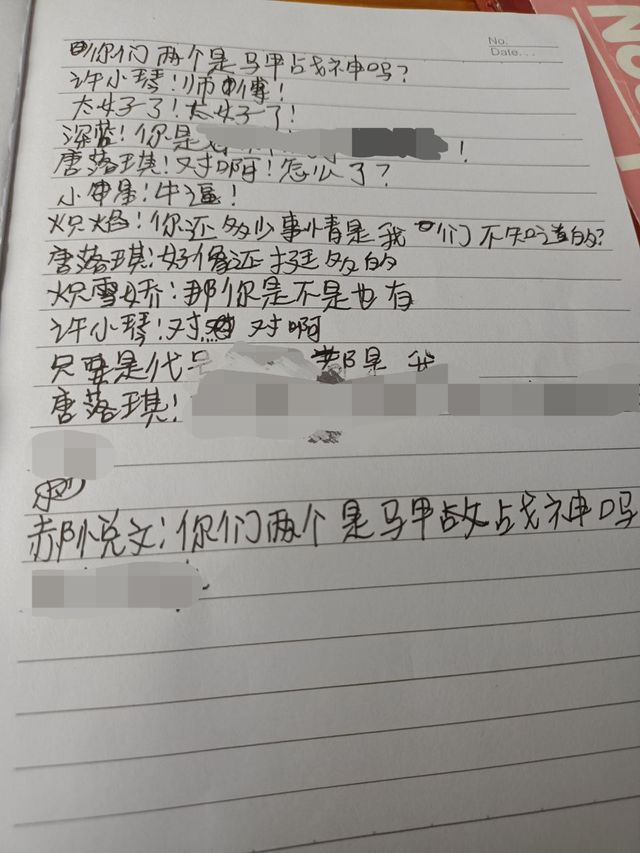 No.
Date...
你们两个是马甲战神吗?
许小琴!师傅!
太好了!太好了!
深蓝!你是
!
唐落琪!对啊!怎么了?
小审星!牛逼!
炽焰!你还多少事情是我们不知道的?
唐落琪:好像还挺多的
炽雪娇:那你是不是也有
许小琴!对 对啊
只要是代号 都是我
唐落琪!
郝悦文:你们两个是马甲故战神吗
No